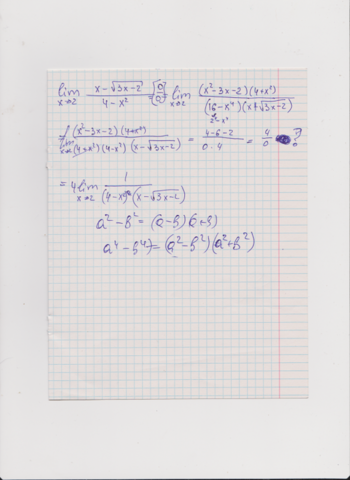 lim x→2 x − √3x−2 / 4 − x² = [0/0] = lim x→2 (x²−3x−2)(4+x²) / (16−x⁴)(x+√3x−2)
lim x→2 (x²−3x−2)(4+x²) / (4+x²)(4−x²)(x−√3x−2) = 4−6−2 / 0·4 = 4/0 ?
= 4 lim x→2 1 / (4−x²)(x−√3x−2)
a² − b² = (a−b)(a+b)
a⁴ − b⁴) = (a²−b²)(a²+b²)